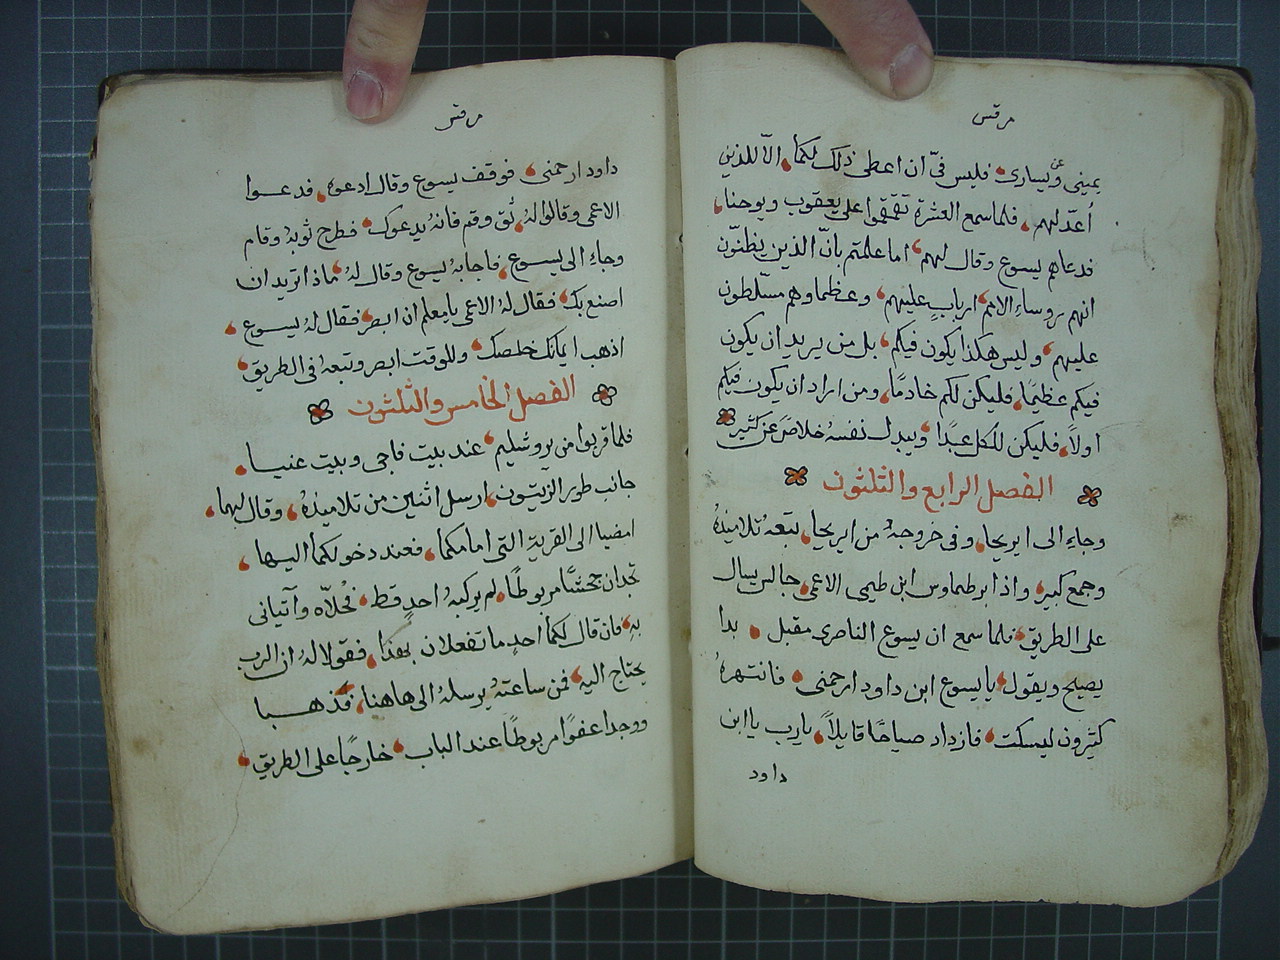 مرقس
يميني وعن يساري فليس فيّ ان اعطى ذلك لكما الاّ للذين
أعدّ لهم فلما سمع العشرة تقمقموا على يعقوب ويوحنا
فدعاهم يسوع وقال لهم اما علمتم بانّ الذين يظنّون
انهم روساء الامم اربابٍ عليهم وعظماوهم مسلّطون
عليهم وليس هكذا يكون فيكم بل من يريد ان يكون
فيكم عظيمًا فليكن لكم خادمًا ومن اراد ان يكون فيكم
اولاً فليكن للكل عبدًا ويبدل نفسهُ خلاصَ عن كثير
الفصل الرابع والثلثون
وجاء الى ايريحا وفي خروجهُ من ايريحا تبعهُ تلاميذهُ
وجمع كبير واذا برطماوس ابن طيمى الاعمى جالس يسال
على الطريق فلما سمع ان يسوع الناصري مقبل بدا
يصيح ويقول يا يسوع ابن داود ارحمني فانتهرهُ
كثيرون ليسكت فازداد صياحًا قايلاً يا رب يا ابن
داود
مرقس
داود ارحمني فوقف يسوع وقال ادعوه فدعوا
الاعمى وقالوا لهُ ثق وقم فانهُ يدعوك فطرح ثوبهُ وقام
وجاء الى يسوع فاجابهُ يسوع وقال لهُ ماذا تريد ان
اصنع بك فقال لهُ الاعمى يا معلم ان ابصر فقال لهُ يسوع
اذهب ايمانك خلصك وللوقت ابصر وتبعهُ في الطريق
الفصل الخامس والثلثون
فلما قربوا من يروشليم عند بيت فاجى وبيت عنيا
جانب طور الزيتون ارسل اثنين من تلاميذهُ وقال لهما
امضيا الى القرية التي امامكما فعند دخولكما اليها
تجدان جحشًا مربوطًا لم يركبهُ احدٍ قط فحُلاّه وآتياني
بهِ فان قال لكما احدٍ ما تفعلان بهذا فقولا لهُ ان الرب
يحتاج اليه فمن ساعتهُ يرسلهُ الى هاهنا فذهبا
ووجدا عفوًا مربوطًا عند الباب خارجًا على الطريق